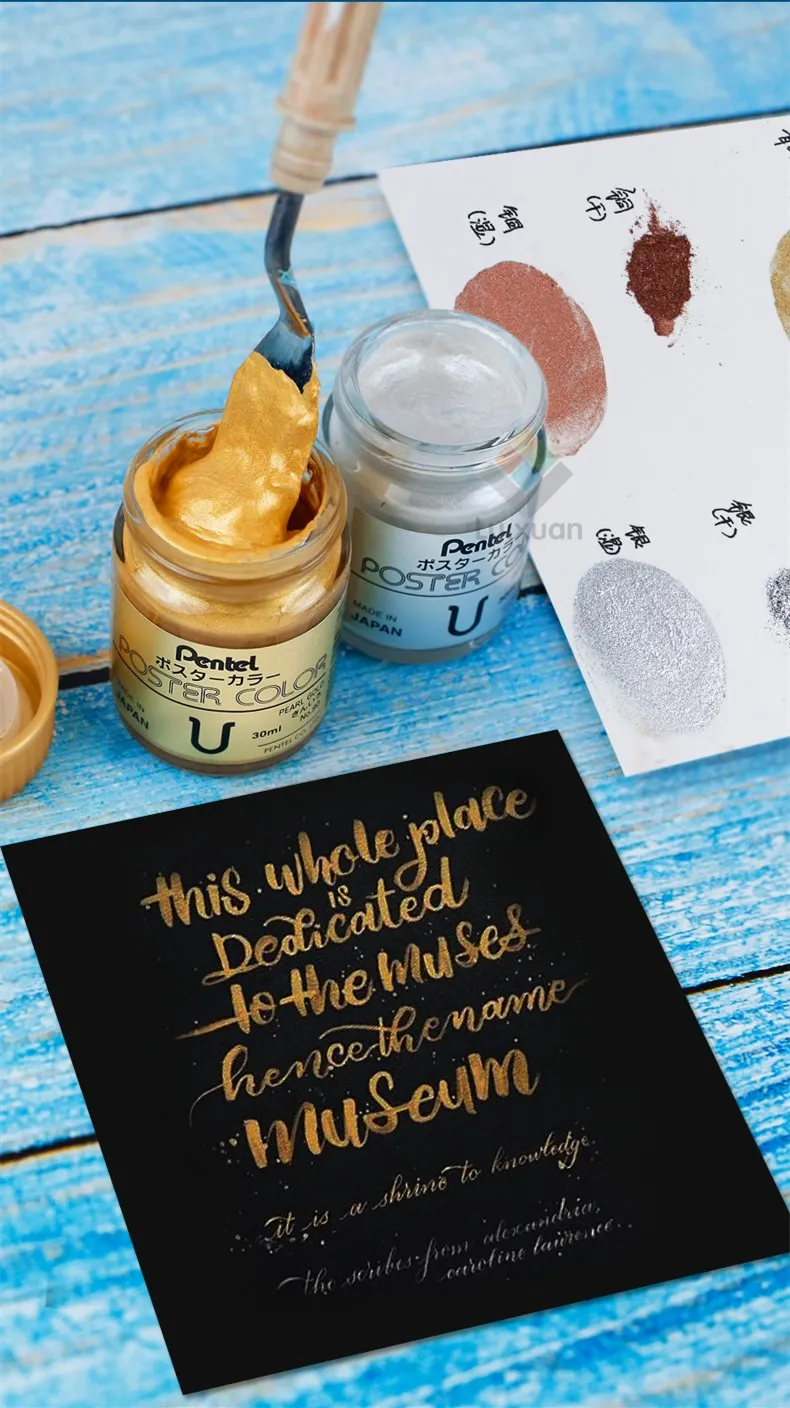 銅
(干)
銅
(濕)
銀
(干)
銀
(濕)
Pentel
ポスターカラー
POSTER CO
MADE IN
JAPAN
U
Pentel
ポスターカラー
POSTER COLOR
MADE IN
JAPAN
U
30ml
PEARL GOLD
PENTEL CO.
this whole place
is
Dedicated
to the muses
hence the name
museum
it is a shrine to knowledge.
the scribes from alexandria,
caroline lawrence.